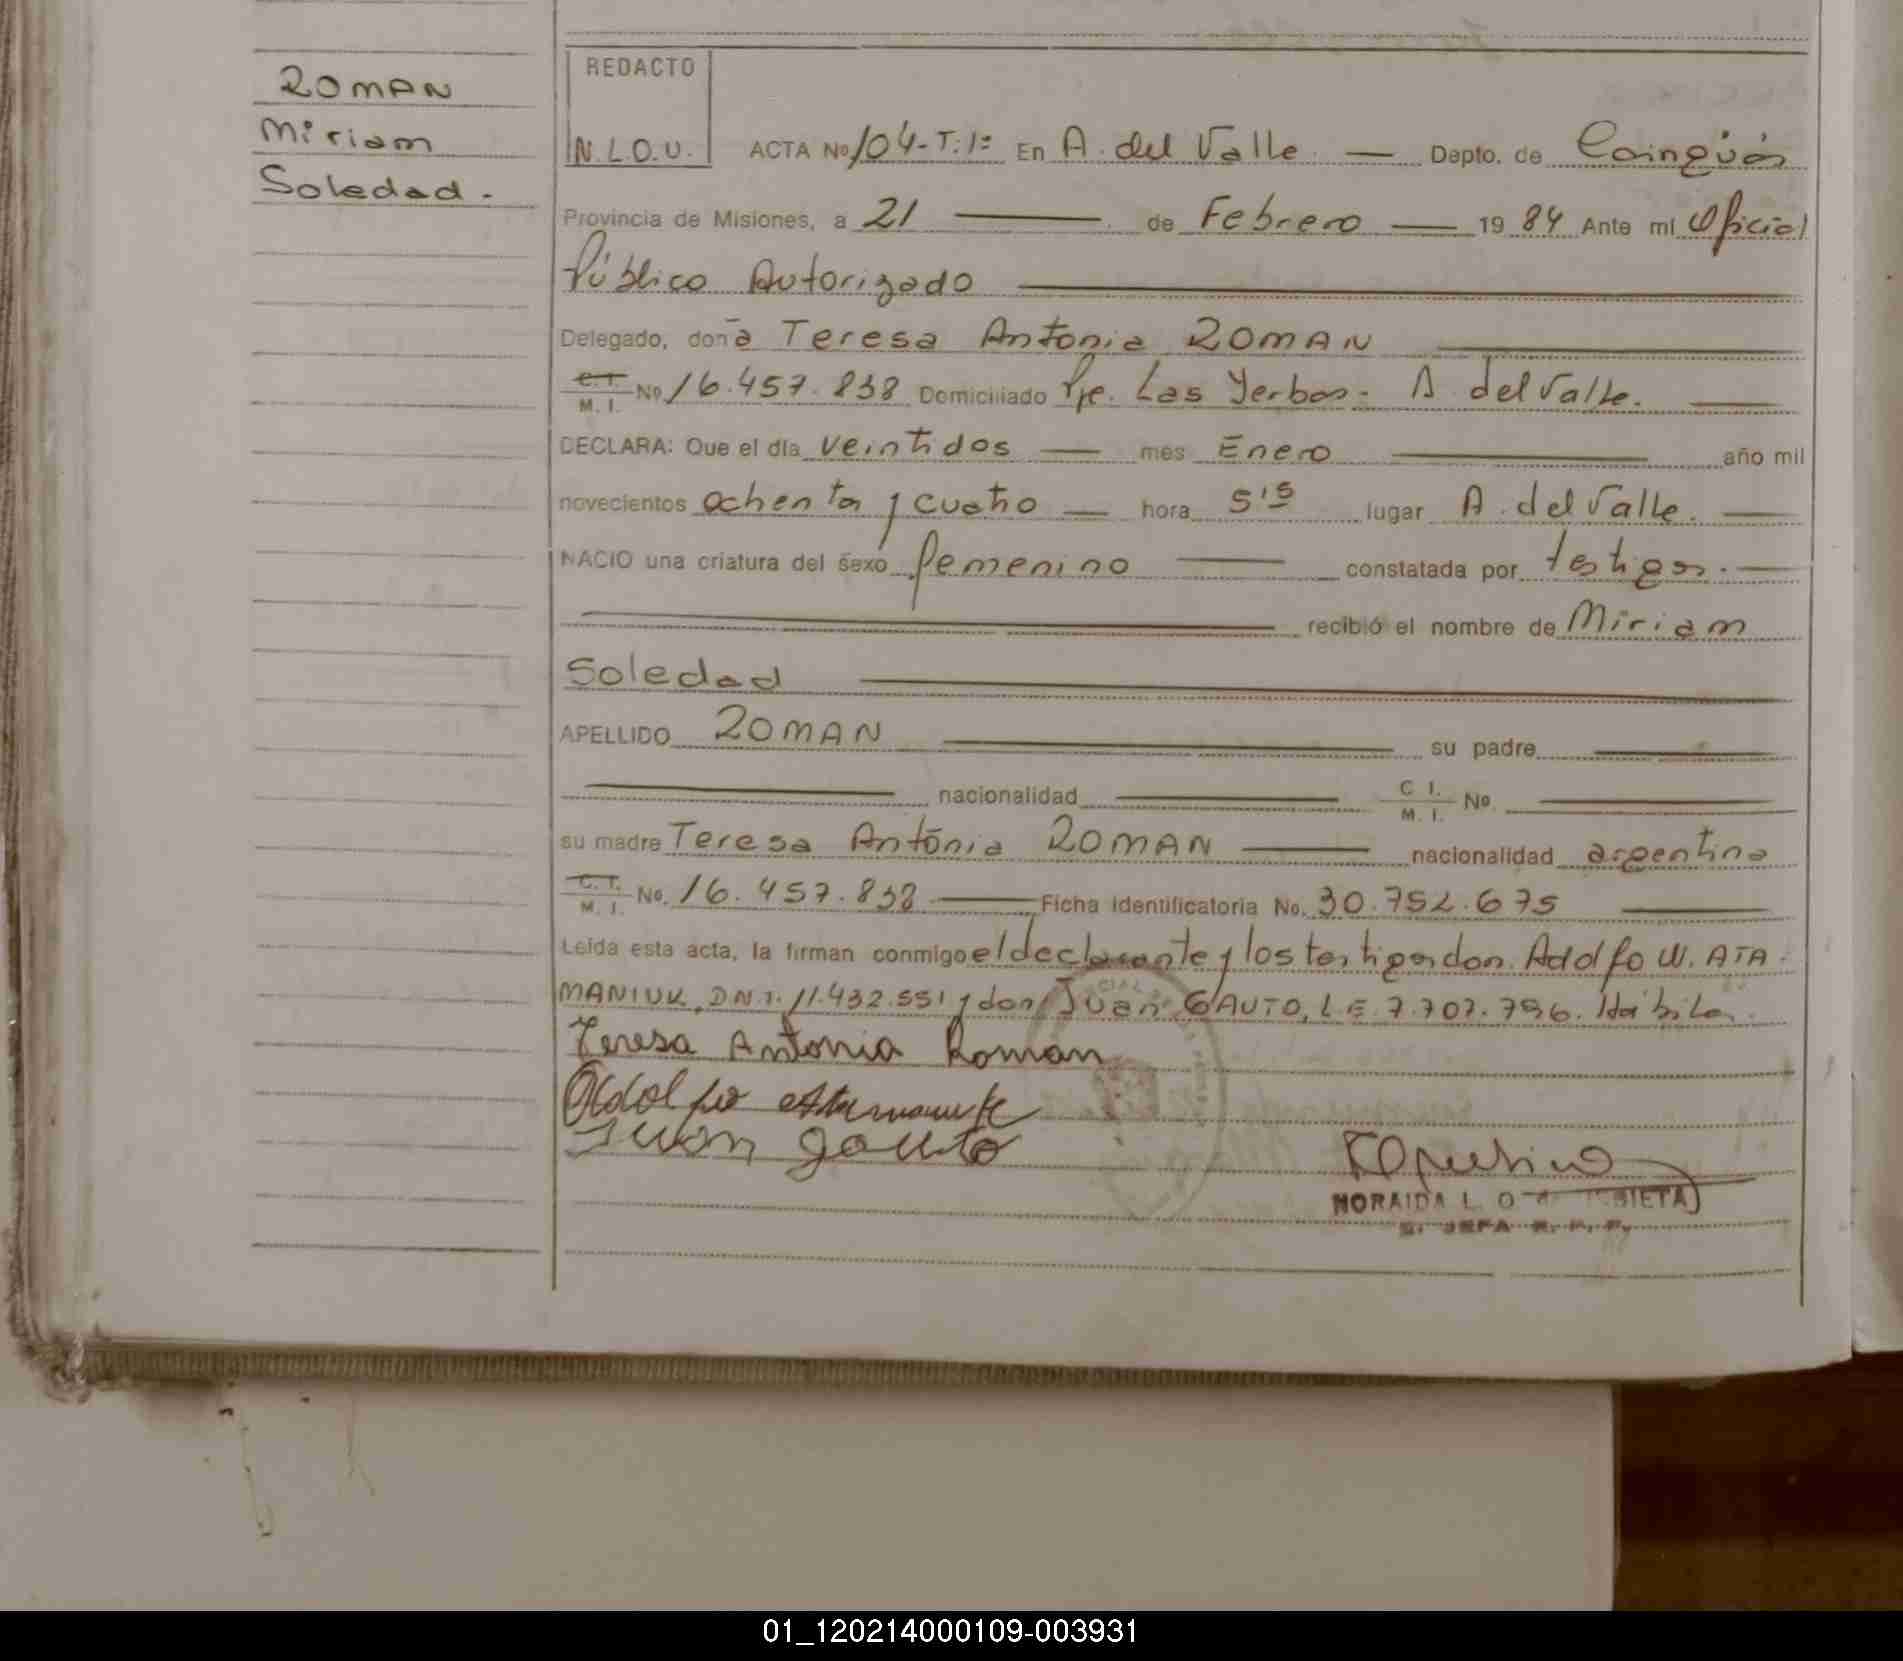 ROMAN
Miriam
Soledad.
REDACTO
N.L.O.U.
ACTA No 104-T:1º En A. del Valle Depto. de Cainguás
Provincia de Misiones, a 21 de Febrero 1984 Ante mi Oficial
Público Autorizado
Delegado, doña Teresa Antonia ROMAN
C.I. M.I. No 16.457.838 Domiciliado Pje. Las Yerbas - A. del Valle.
DECLARA: Que el día veintidos mes Enero año mil
novecientos ochenta y cuatro hora 5'15 lugar A. del Valle.
NACIO una criatura del sexo femenino constatada por testigos.
recibió el nombre de Miriam
Soledad
APELLIDO ROMAN su padre
nacionalidad C I. M. I. No
su madre Teresa Antonia ROMAN nacionalidad argentina
C.I. M.I. No. 16.457.838 Ficha Identificatoria No. 30.752.675
Leída esta acta, la firman conmigo el declarante y los testigos don Adolfo W. ATA-
MANIUK, D.N.I. 11.432.551 y don Juan GAUTO, L.E. 7.707.796. Hábiles.
Teresa Antonia Roman
Adolfo Atamaniuk
Juan gauto
NORAIDA L. O
JEFA
01_120214000109-003931